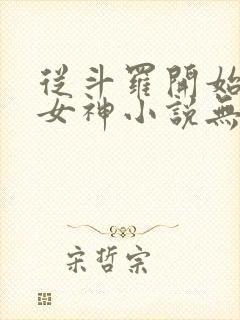 從斗羅開始
女神小說無
宋哲宗